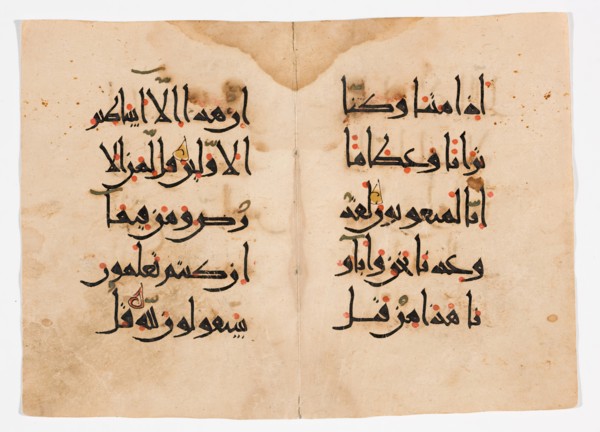 اذا متنا وكنا
ترابا وعظاما
انا لمبعوثون لقد
وعدنا نحن وآباو
نا هذا من قبل
ان هذا الا اساطير
الاولين قل لمن الا
رض ومن فيها
ان كنتم تعلمون
سيقولون لله قل